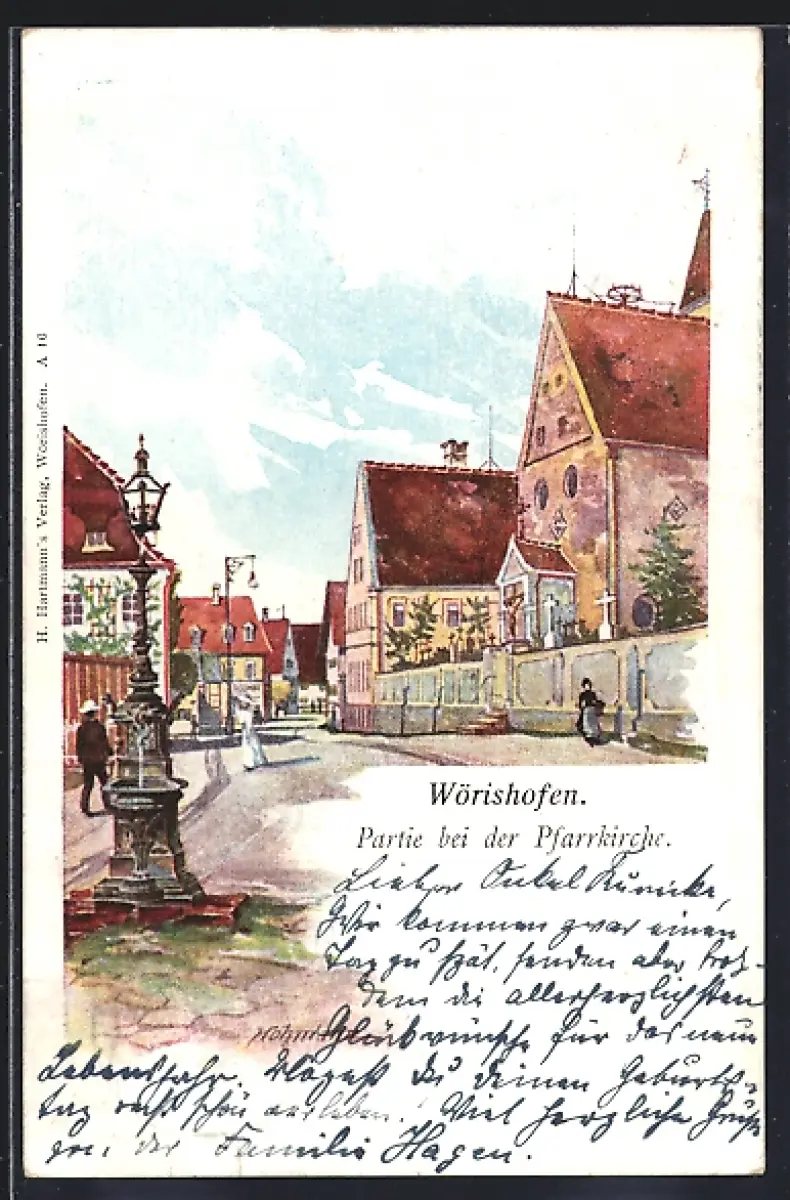 H. Hartmann's Verlag, Wörishofen. A 16
Wörishofen.
Partie bei der Pfarrkirche.
Lieber Onkel
Wir kommen zwar einen
Tag zu spät, senden aber trotz-
dem die allerherzlichsten
Glückwünsche für das neue
Lebensjahr. Mögest Du Deinen Geburts-
tag recht schön erleben! Viel herzliche Grüße
von der Familie Hagen.